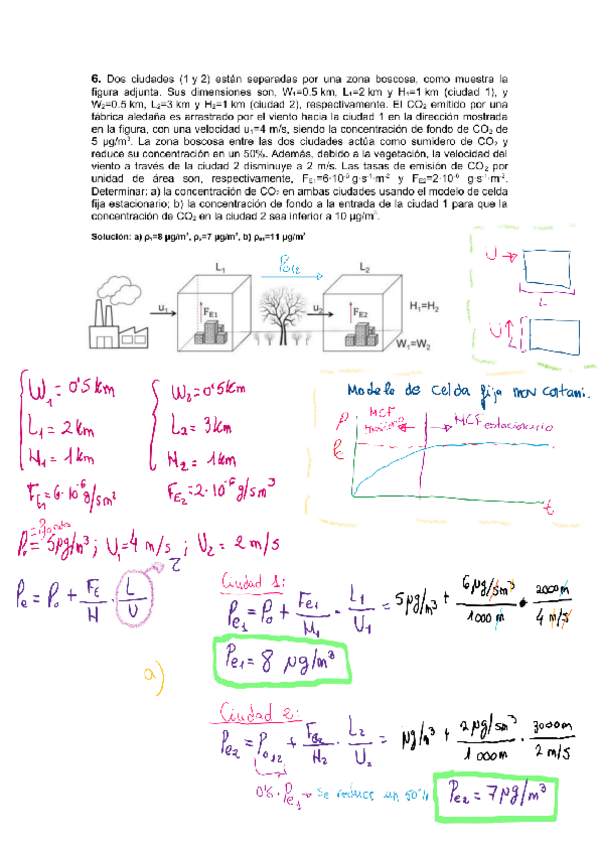 6. Dos ciudades (1 y 2) están separadas por una zona boscosa, como muestra la
figura adjunta. Sus dimensiones son, W₁=0.5 km, L₁=2 km y H₁=1 km (ciudad 1), y
W₂=0.5 km, L₂=3 km y H₂=1 km (ciudad 2), respectivamente. El CO₂ emitido por una
fábrica aledaña es arrastrado por el viento hacia la ciudad 1 en la dirección mostrada
en la figura, con una velocidad u₁=4 m/s, siendo la concentración de fondo de CO₂ de
5 μg/m³. La zona boscosa entre las dos ciudades actúa como sumidero de CO₂ y
reduce su concentración en un 50%. Además, debido a la vegetación, la velocidad del
viento a través de la ciudad 2 disminuye a 2 m/s. Las tasas de emisión de CO₂ por
unidad de área son, respectivamente, F_E1=6·10⁻⁶ g·s⁻¹·m⁻² y F_E2=2·10⁻⁶ g·s⁻¹·m⁻².
Determinar: a) la concentración de CO₂ en ambas ciudades usando el modelo de celda
fija estacionario; b) la concentración de fondo a la entrada de la ciudad 1 para que la
concentración de CO₂ en la ciudad 2 sea inferior a 10 μg/m³.
Solución: a) ρ₁=8 μg/m³, ρ₂=7 μg/m³, b) ρ₀₁=11 μg/m³
L₁ ρ₀₁₂ L₂
u₁ F_E1 u₂ F_E2 H₁=H₂
W₁=W₂
U
L
U
W₁ = 0'5 km W₂ = 0'5 km
L₁ = 2 km L₂ = 3 km
H₁ = 1 km H₂ = 1 km
F_E1 = 6·10⁻⁶ g/sm² F_E2 = 2·10⁻⁶ g/sm³
Modelo de celda fija
ρ MCF MCF estacionario
t
ρ₀ = 5 μg/m³; U₁ = 4 m/s; U₂ = 2 m/s
ρe = ρ₀ + F_E/H · L/U
Ciudad 1:
ρe₁ = ρ₀ + Fe₁/H₁ · L₁/U₁ = 5 μg/m³ + 6 μg/sm²/1000 m · 2000 m/4 m/s
a)
ρe₁ = 8 μg/m³
Ciudad 2:
ρe₂ = ρ₀₁₂ + Fe₂/H₂ · L₂/U₂ = μg/m³ + 2 μg/sm³/1000 m · 3000 m/2 m/s
· ρe₁ → se reduce un 50%
ρe₂ = 7 μg/m³